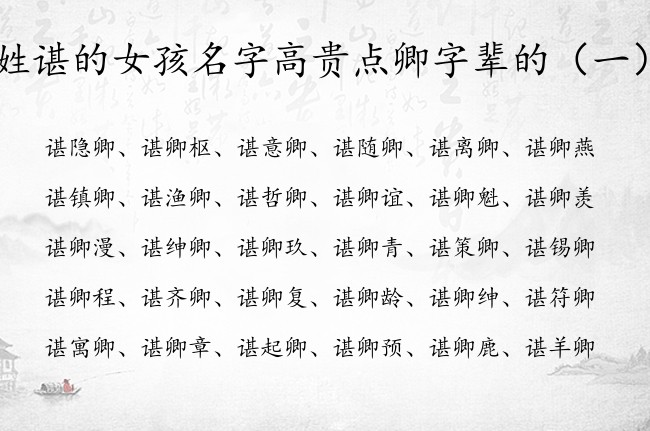 姓谌的女孩名字高贵点卿字辈的（一）
谌隐卿、谌卿枢、谌意卿、谌随卿、谌离卿、谌卿燕
谌镇卿、谌渔卿、谌哲卿、谌卿谊、谌卿魁、谌卿羡
谌卿漫、谌绅卿、谌卿玖、谌卿青、谌策卿、谌锡卿
谌卿程、谌齐卿、谌卿复、谌卿龄、谌卿绅、谌符卿
谌寓卿、谌卿章、谌起卿、谌卿预、谌卿鹿、谌羊卿